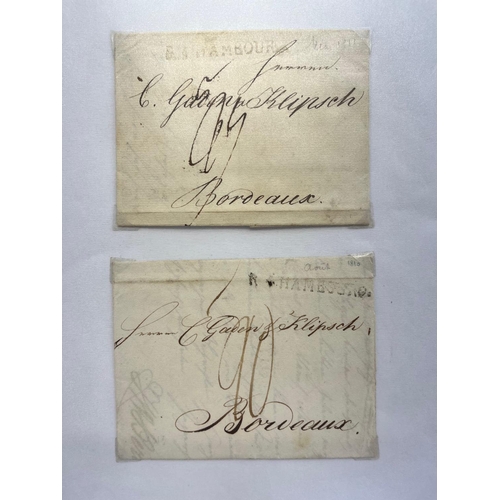 HAMBOURG
Herren
C. Gaden & Klipsch
Bordeaux.
HAMBOURG.
Herren C. Gaden & Klipsch,
Bordeaux.